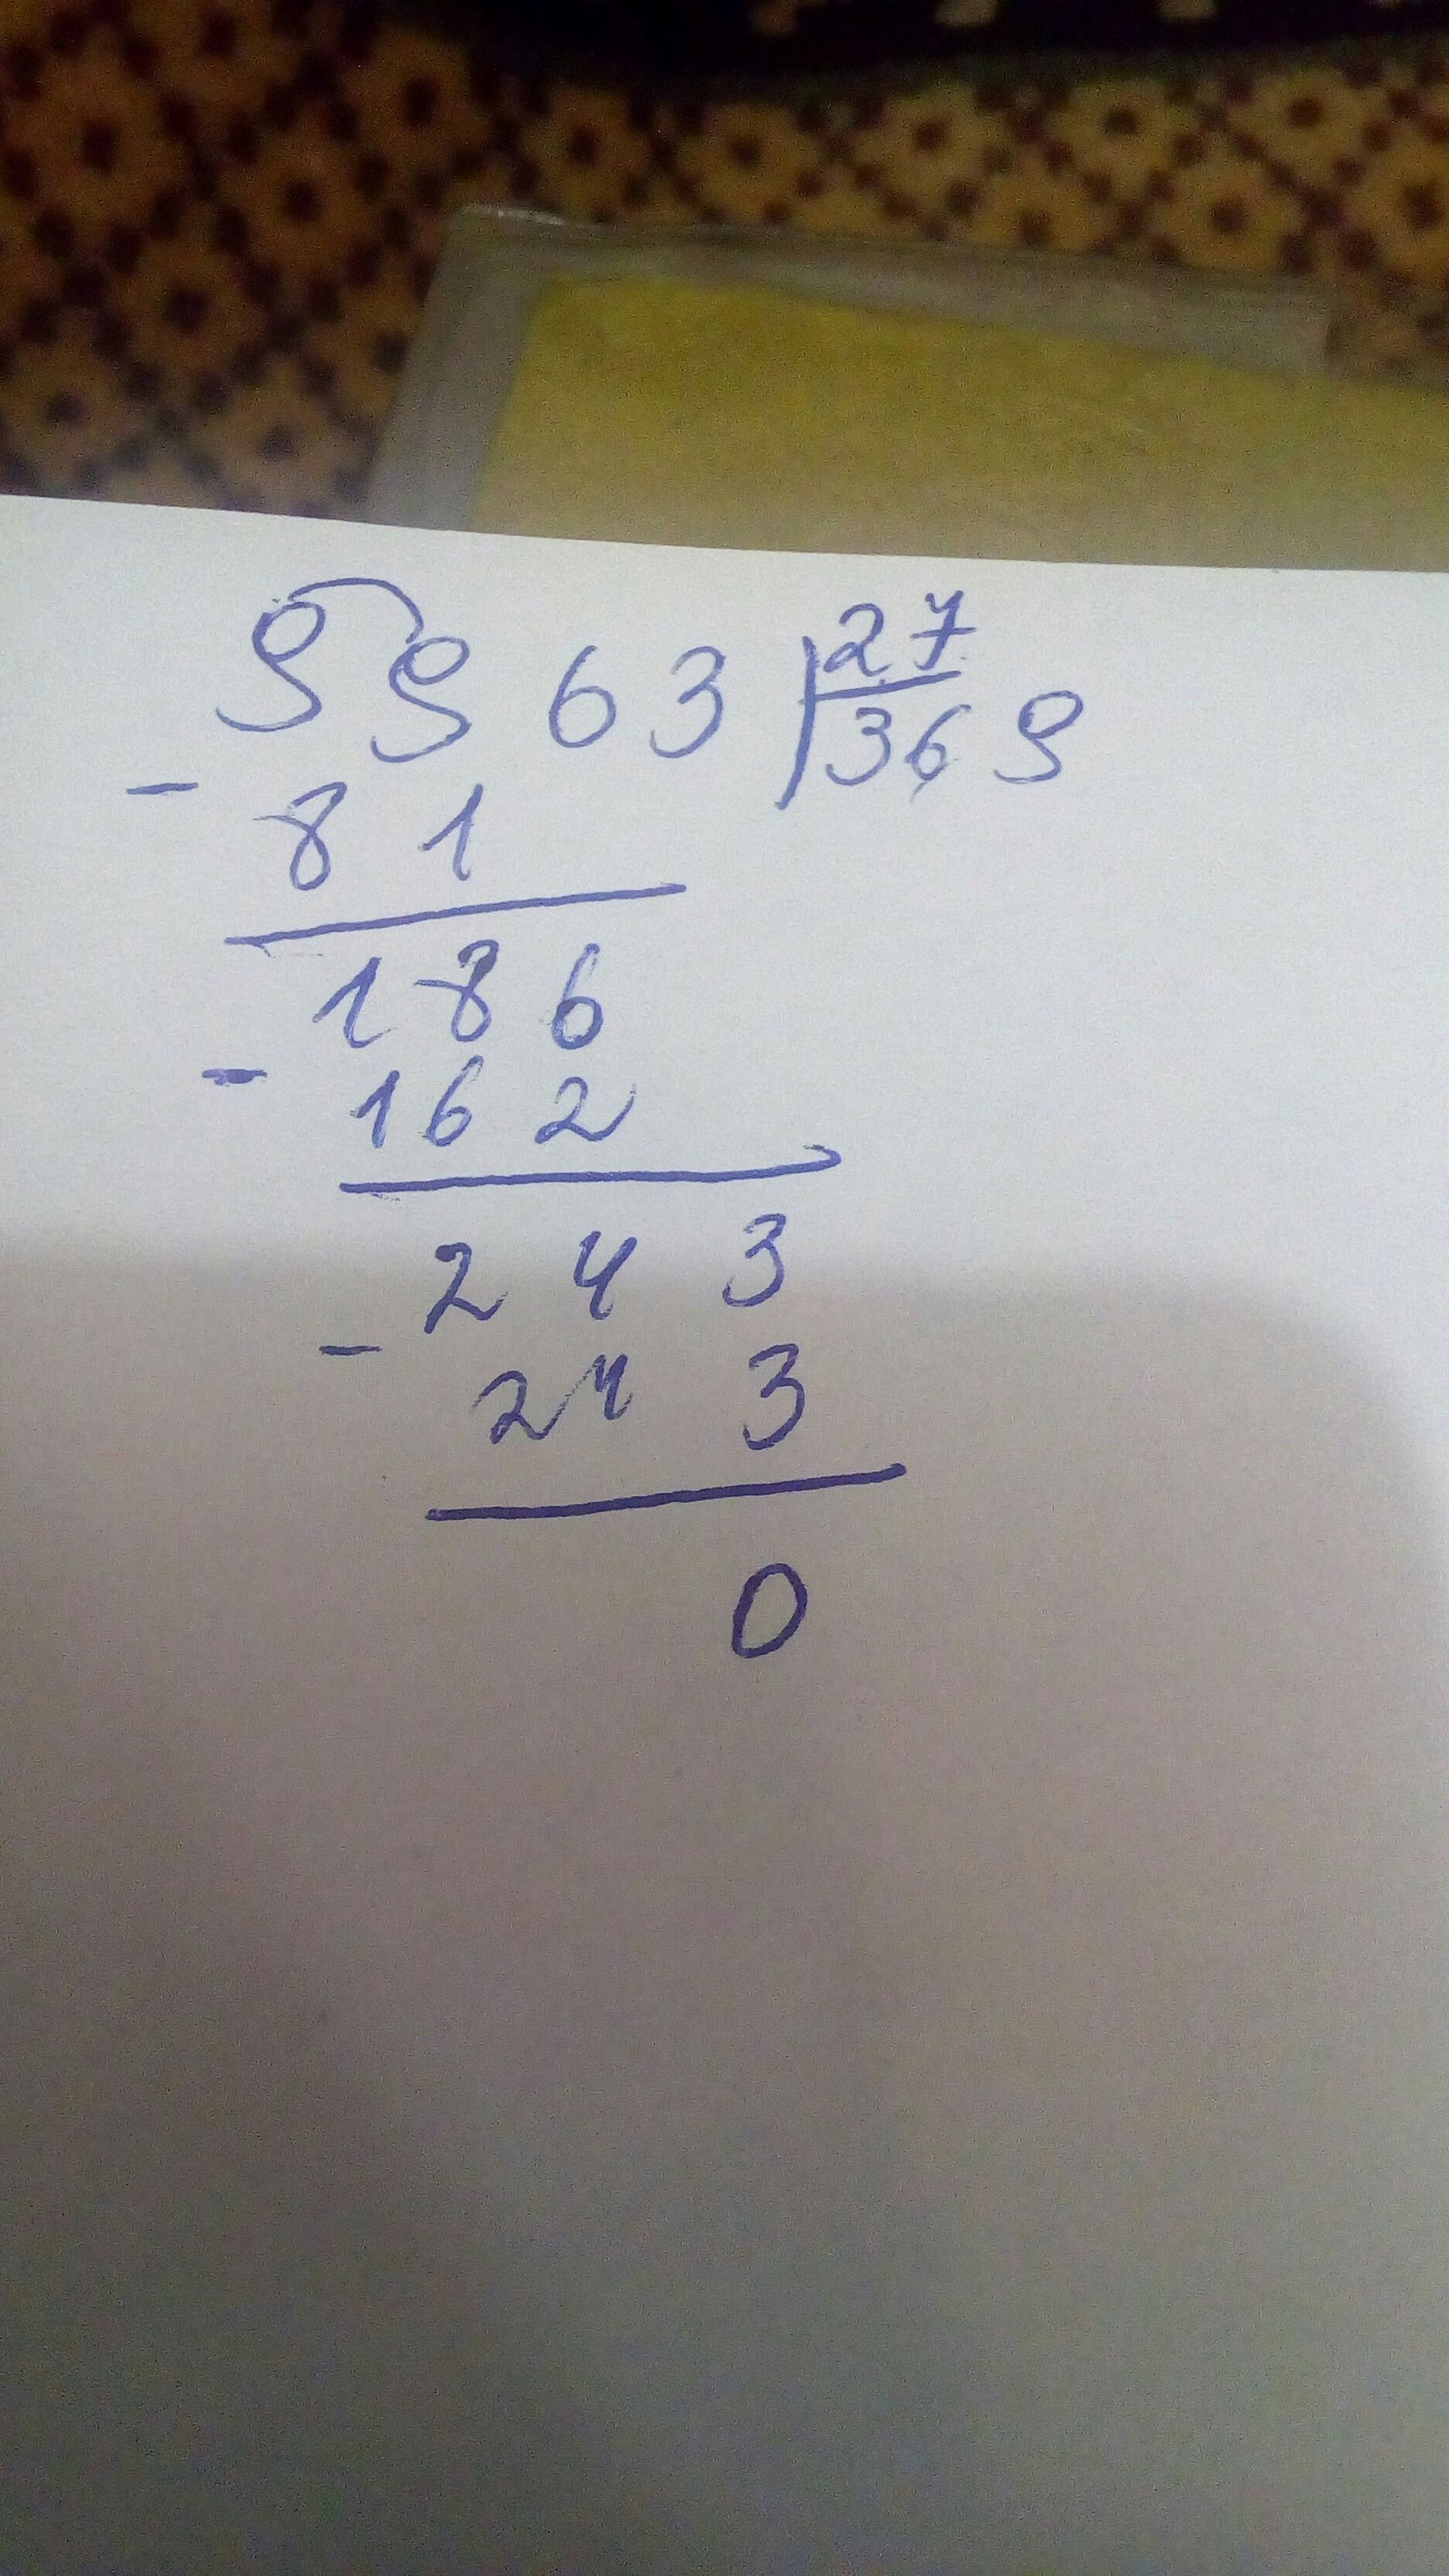 9963 | 27
369
- 81
186
- 162
243
- 243
0